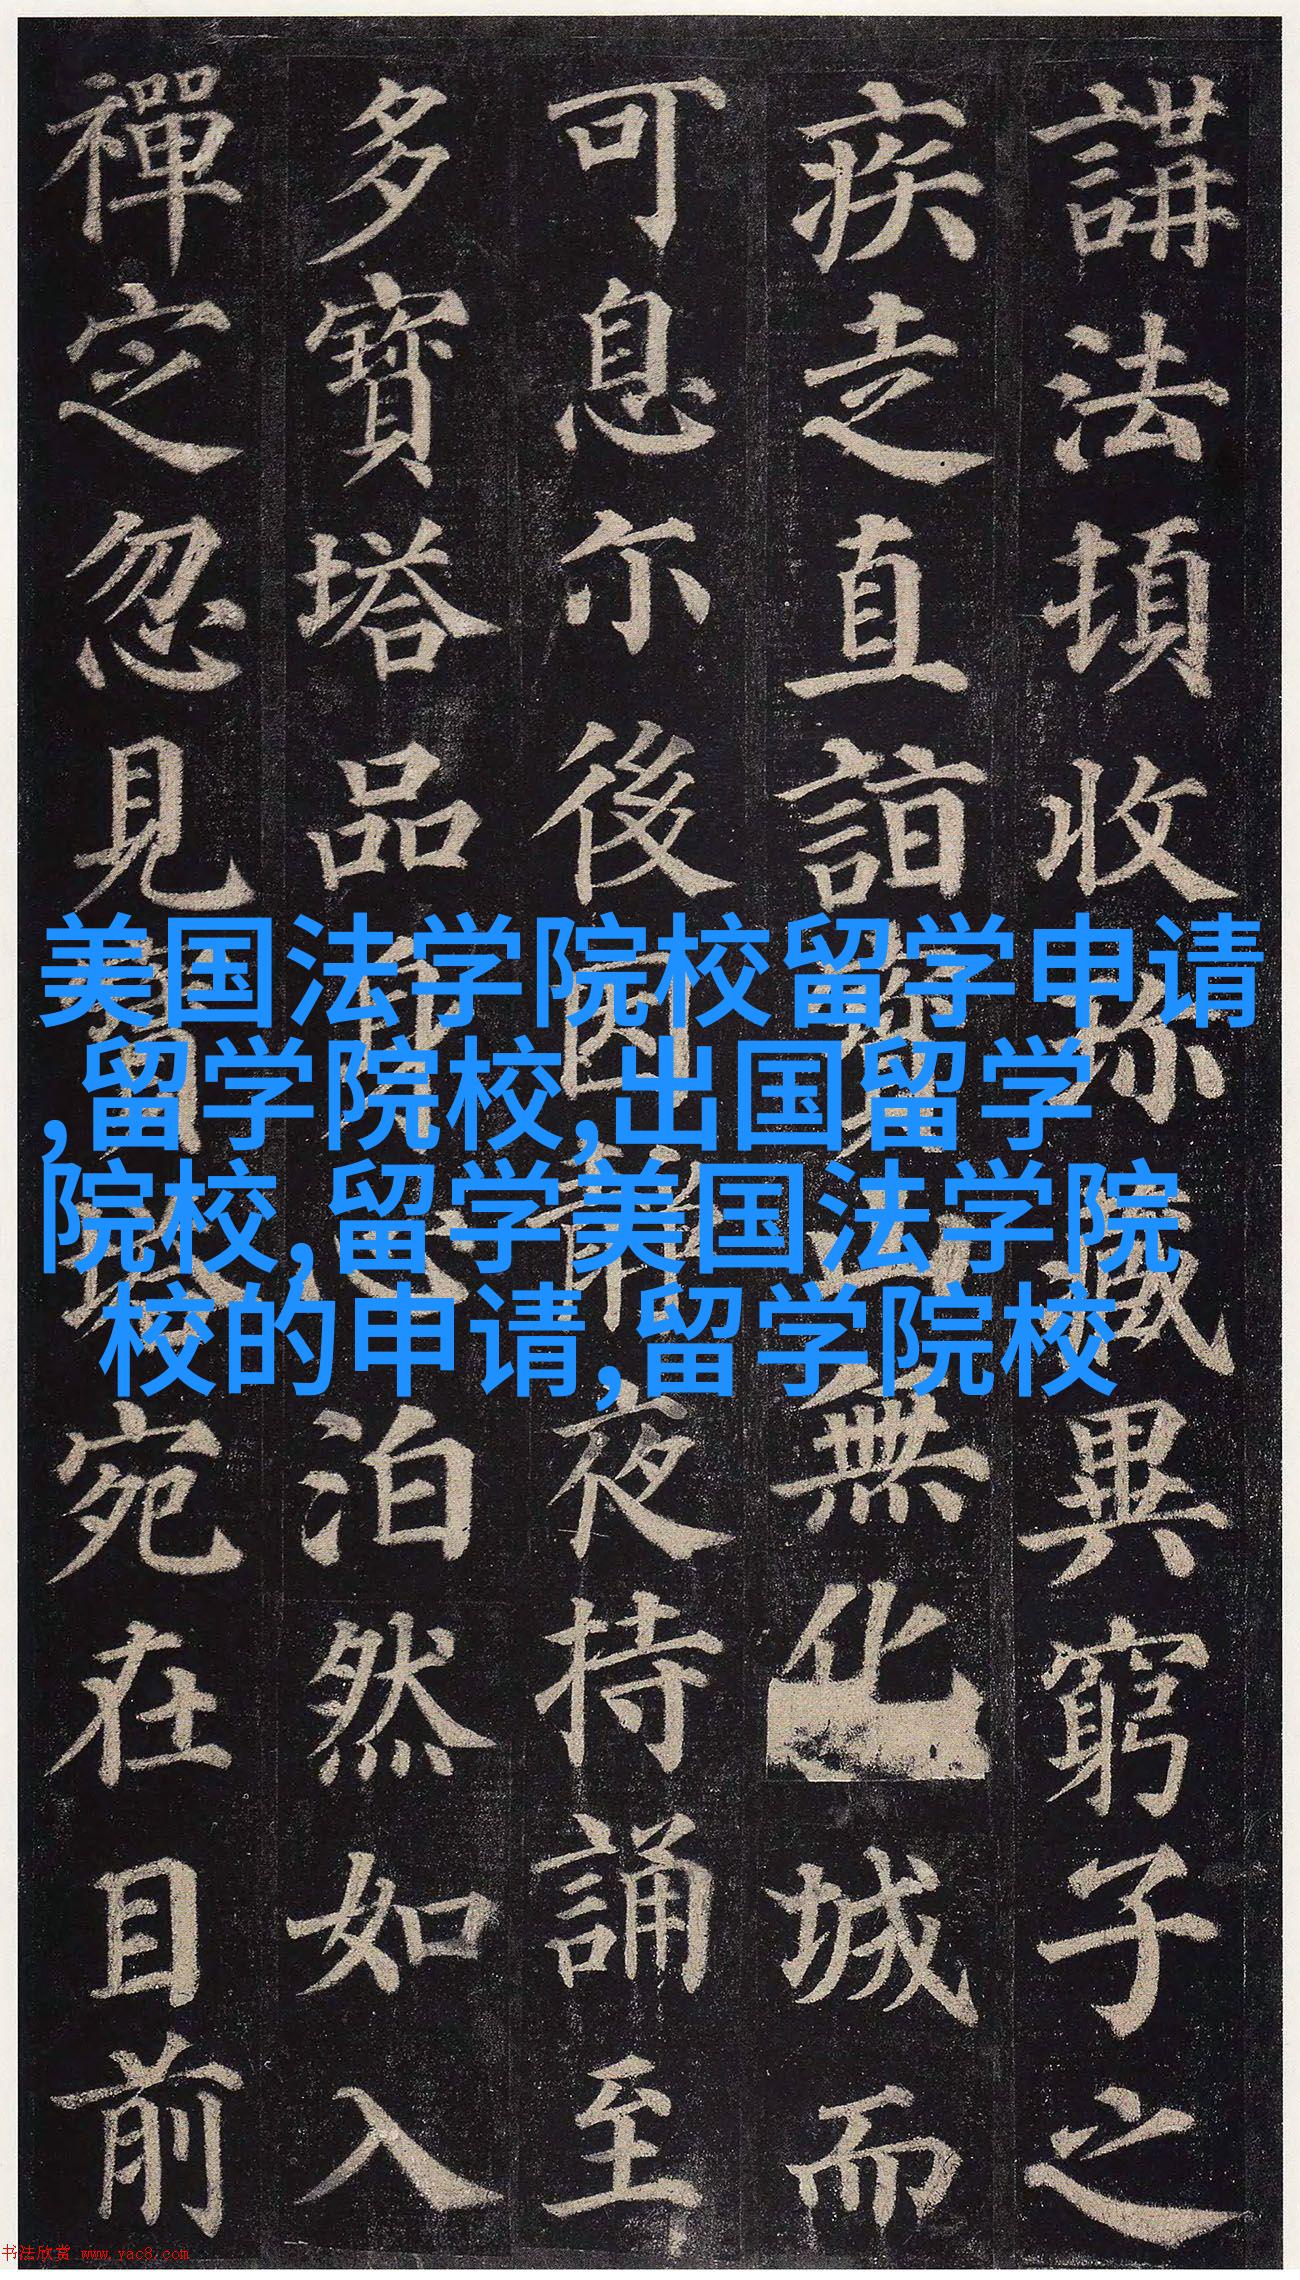 講法頓收珎藏異窮子之
疾走直詣寶山無化城而
可息尒後因靜夜持誦至
多寶塔品身心泊然如入
禪定忽見寶塔宛在目前
美国法学院校留学申请
,留学院校,出国留学
院校,留学美国法学院
校的申请,留学院校
书法欣赏 www.yac8.com